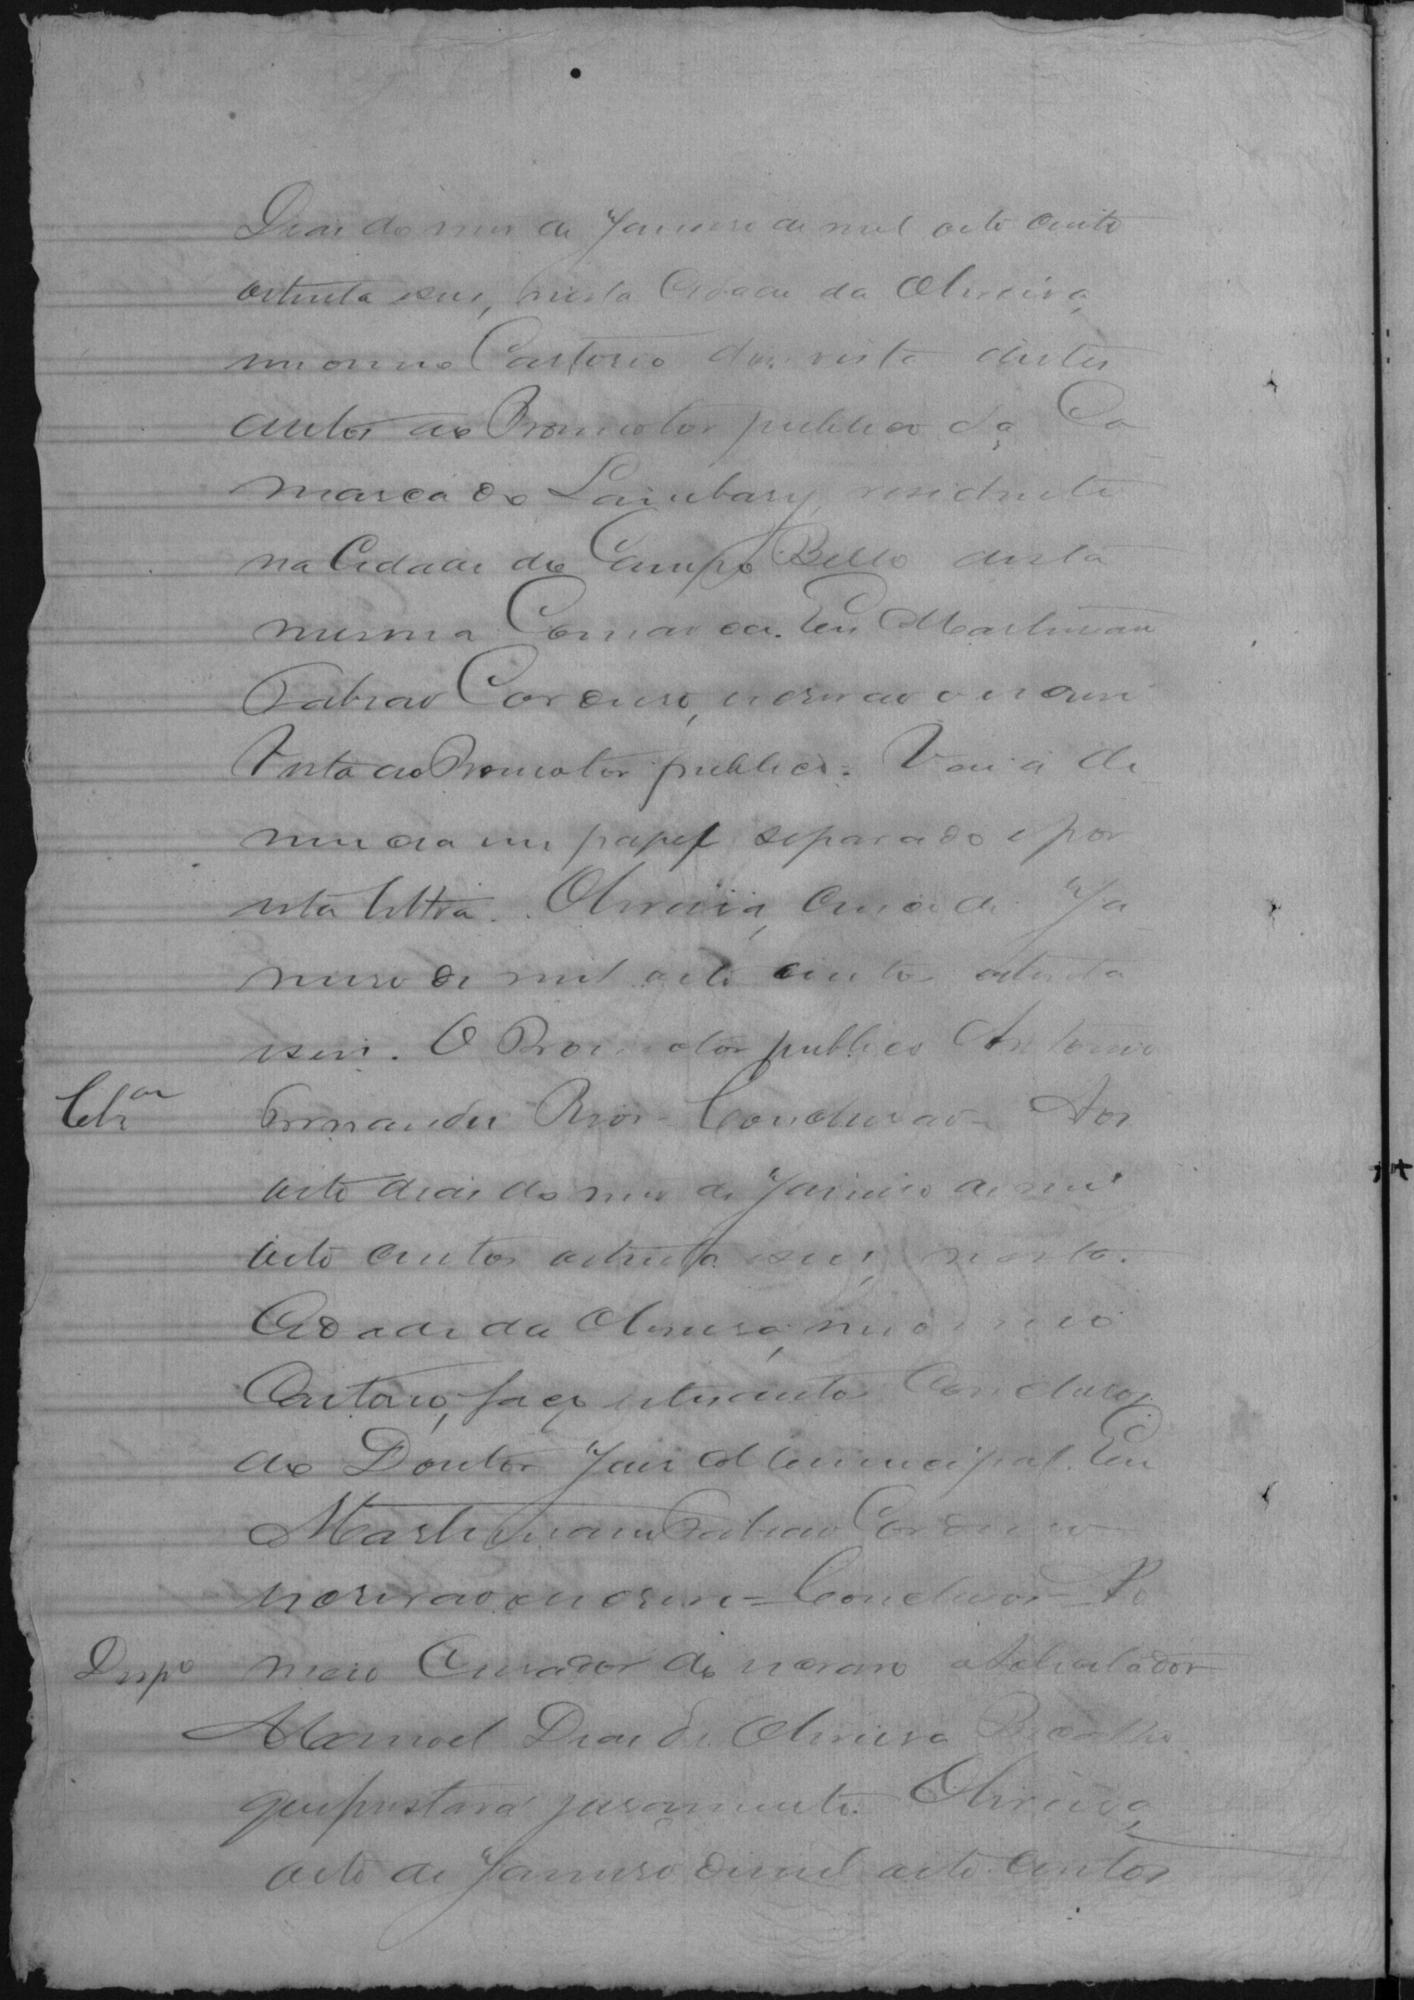 Dias do mes de Janeiro de mil oito cento
oitenta e seis, nesta Cidade da Oliveira,
em o meu Cartorio dou vista destes
autos ao Promotor publico da Co
marca do Lambary, residente
na Cidade do Campo Bello desta
mesma Comarca. Eu Martiniano
Cardoso, escrivão o escrevi
Vista ao Promotor publico. Vai a de
nuncia em papel separado e por
esta lettra. Oliveira, de Ja
neiro de mil oito centos oitenta
e seis. O Promotor publico Antonio
Clsão Fernandes Rios - Conclusão - Aos
oito dias do mes de Janeiro de mil
oito centos oitenta e seis, nesta
Cidade da Oliveira, em o meu
Cartorio, faço estes autos Conclusos
ao Doutor Juis Municipal. Eu
Martiniano Cardoso
escrivão o escrevi = Conclusos = No
Desp.º meio Curador do escravo o Solicitador
Manoel Dias de Oliveira Bicalho
que prestará juramento. Oliveira,
oito de Janeiro de mil oito centos